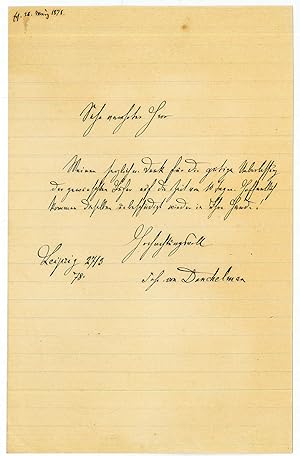 28. März 1878.
Sehr geehrter Herr
Meinen herzlichen Dank für die gütige Ueberlassung
der gewünschten Bücher auf die Zeit von 14 Tagen. Hoffentlich
kommen dieselben unbeschädigt wieder in Ihre Hände!
Hochachtungsvoll
Leipzig 27/3
78.
von Danckelman